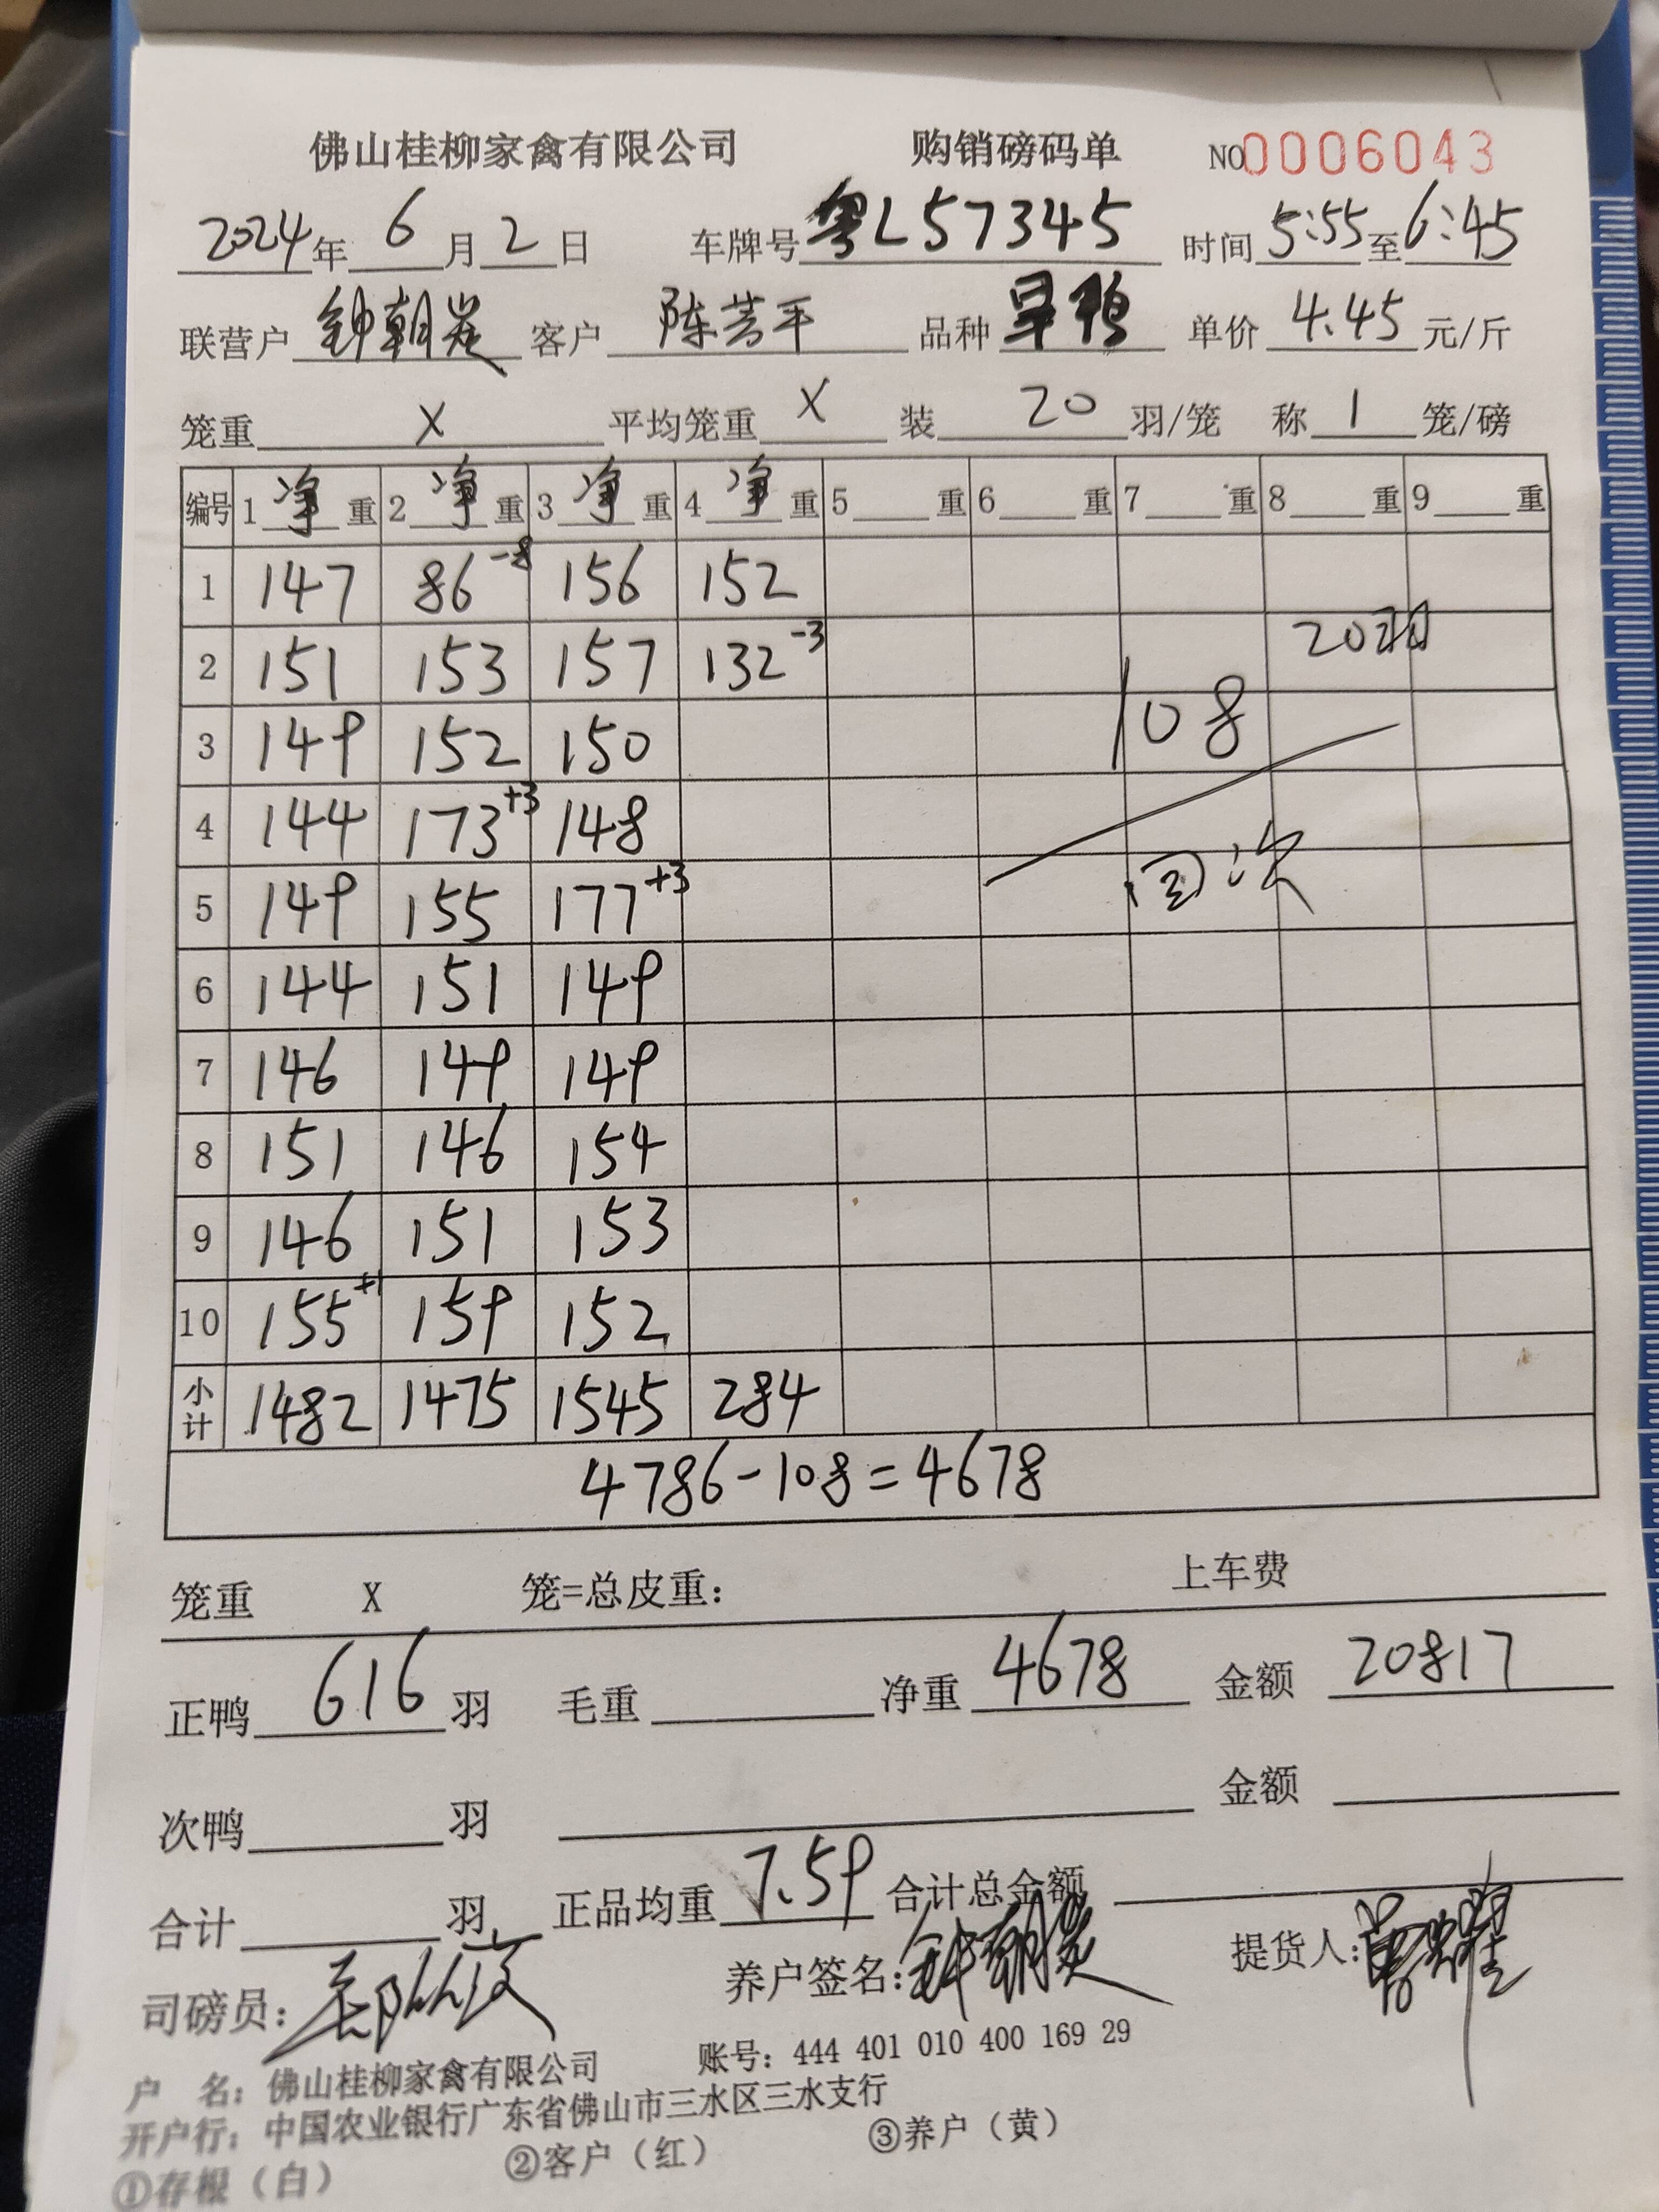 佛山桂柳家禽有限公司 购销磅码单 NO0006043
2024年 6 月 2 日 车牌号 粤L57345 时间 5:55 至 6:45
联营户 钟朝 客户 陈芳平 品种 旱鸭 单价 4.45 元/斤
笼重 X 平均笼重 X 装 20 羽/笼 称 1 笼/磅
编号 1 净 重 2 净 重 3 净 重 4 净 重 5 重 6 重 7 重 8 重 9 重
1 147 86-8 156 152
2 151 153 157 132-3 20羽
3 149 152 150 108
4 144 173+3 148
5 149 155 177+3 回次
6 144 151 149
7 146 149 149
8 151 146 154
9 146 151 153
10 155+1 159 152
小计 1482 1475 1545 284
4786-108=4678
笼重 X 笼=总皮重: 上车费
正鸭 616 羽 毛重 净重 4678 金额 20817
次鸭 羽 金额
合计 羽 正品均重 7.59 合计总金额
司磅员: 养户签名: 钟朝 提货人:
户 名: 佛山桂柳家禽有限公司 账号: 444 401 010 400 169 29
开户行: 中国农业银行广东省佛山市三水区三水支行
①存根（白） ②客户（红） ③养户（黄）